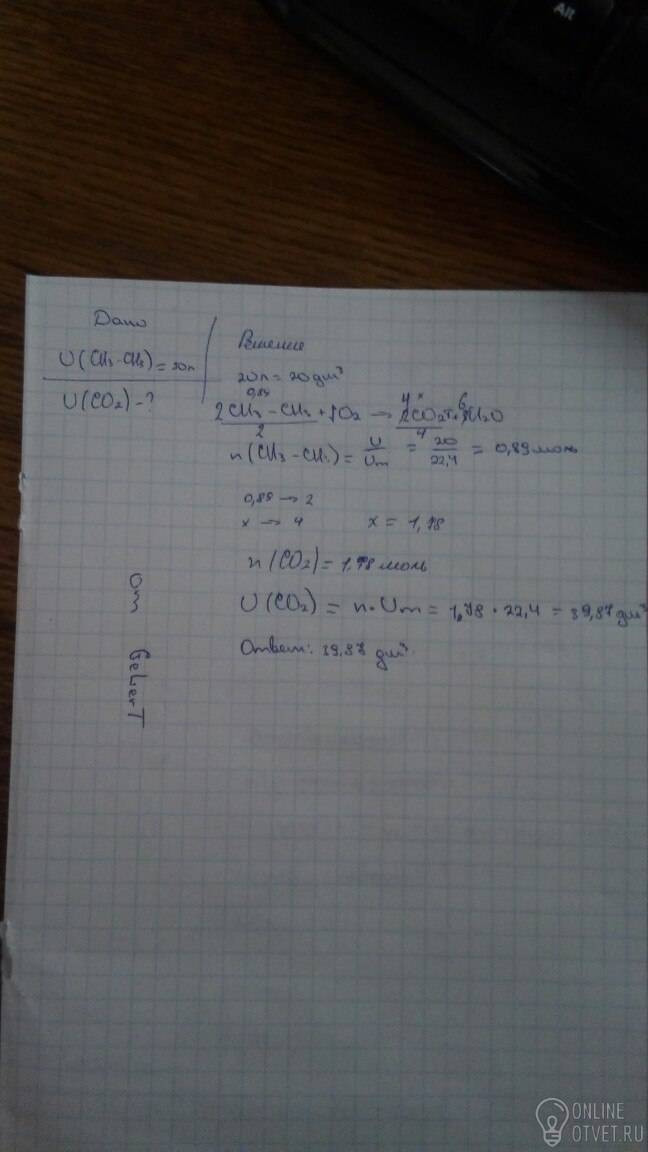 AR
Дано
U(CH₃-CH₃)=20л
U(CO₂)-?
Решение
20л=20дм³
0,89 4 x 6
2CH₃-CH₃ + O₂ → CO₂↑ + H₂O
2 4
n(CH₃-CH₃) = U/Um = 20/22,4 = 0,89 моль
0,89 → 2
x → 4 x = 1,78
n(CO₂)=1,78 моль
U(CO₂) = n·Um = 1,78 · 22,4 = 39,87 дм³
Ответ: 39,87 дм³.
От GeLerT
ONLINE
OTVET.RU